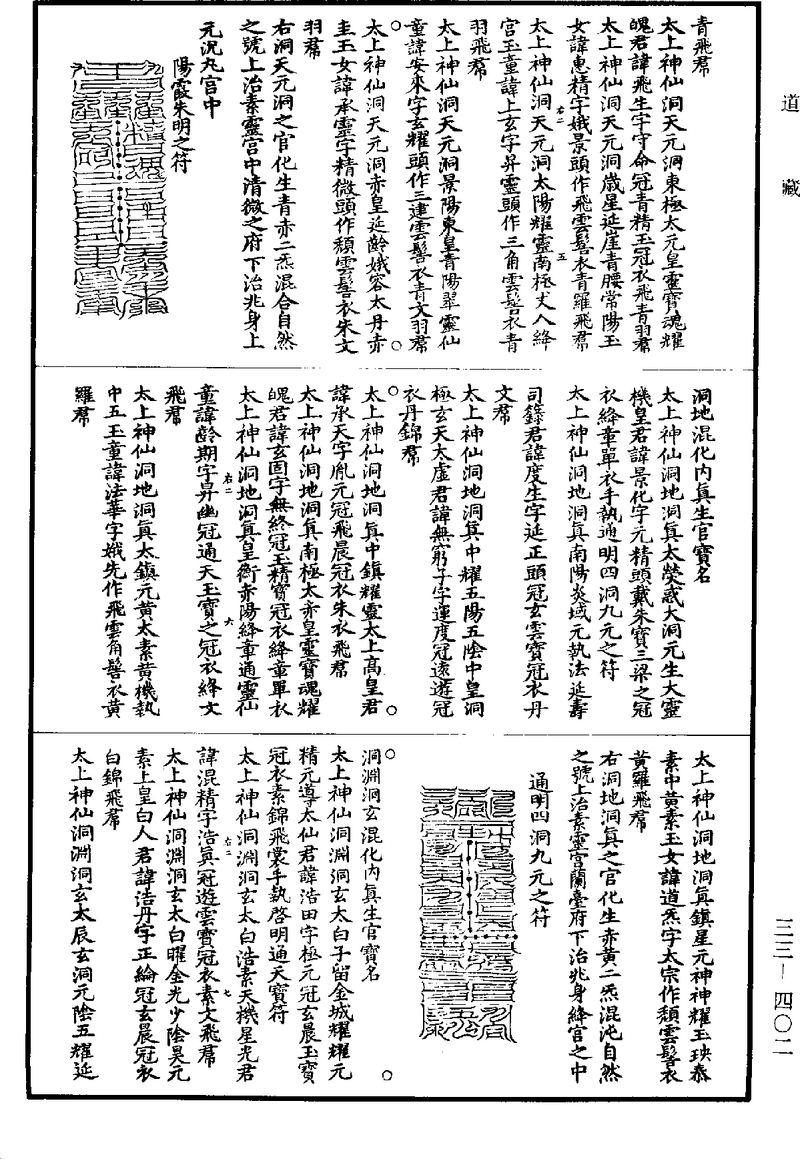 道藏
青飛帬
太上神仙洞天元洞東極太元皇靈寶魂耀
魄君諱飛生字守命冠青精玉冠衣飛青羽帬
太上神仙洞天元洞歲星延崖青腰常陽玉
女諱惠精字娥景頭作飛雲髻衣青羅飛帬
右二
五
太上神仙洞天元洞太陽耀靈南極丈人絳
宮玉童諱上玄字昇靈頭作三角雲髻衣青
羽飛帬
太上神仙洞天元洞景陽東皇青陽翠靈仙
童諱安來字玄耀頭作三建雲髻衣青文羽帬
太上神仙洞天元洞赤皇延齡娥容太丹赤
圭玉女諱承靈字精微頭作頹雲髻衣朱文
羽帬
右洞天元洞之官化生青赤二炁混合自然
之號上治素靈宮中清微之府下治兆身上
元沉丸宮中
陽霞朱明之符
洞地混化內真生官寶名
太上神仙洞地洞真太熒惑大洞元生大靈
機皇君諱景化字元精頭戴朱寶三梁之冠
衣絳章單衣手執通明四洞九元之符
太上神仙洞地洞真南陽炎域元執法延壽
司錄君諱度生字延正頭冠玄雲寶冠衣丹
文帬
太上神仙洞地洞真中耀五陽五陰中皇洞
極玄天大虛君諱無窮子字運度冠遠遊冠
衣丹錦帬
太上神仙洞地洞真中鎮耀靈太上高皇君
諱承天字胤元冠飛晨冠衣朱衣飛帬
太上神仙洞地洞真南極太赤皇靈寶魂耀
魄君諱玄固字無終冠玉精寶冠衣絳章單衣
右二
六
太上神仙洞地洞真皇衡赤陽絳章通靈仙
童諱齡期字昇幽冠通天玉寶之冠衣絳文
飛帬
太上神仙洞地洞真太鎮元黃太素黃機執
中五玉童諱法華字娥先作飛雲角髻衣黃
羅帬
太上神仙洞地洞真鎮星元神神耀玉玦泰
素中黃素玉女諱道炁字太宗作頹雲髻衣
黃羅飛帬
右洞地洞真之官化生赤黃二炁混沌自然
之號上治素靈宮蘭臺府下治兆身絳宮之中
通明四洞九元之符
洞淵洞玄混化內真生官寶名
太上神仙洞淵洞玄太白子留金城耀耀元
精元導太仙君諱浩田字極元冠玄晨玉寶
冠衣素錦飛裳手執啓明通天寶符
太上神仙洞淵洞玄太白浩素天機星光君
右二
七
諱混精字浩真冠遊雲寶冠衣素文飛帬
太上神仙洞淵洞玄太白曜金光少陰昊元
素上皇白人君諱浩丹字正綸冠玄晨冠衣
白錦飛帬
太上神仙洞淵洞玄太辰玄洞元陰五耀延
三三—四〇二